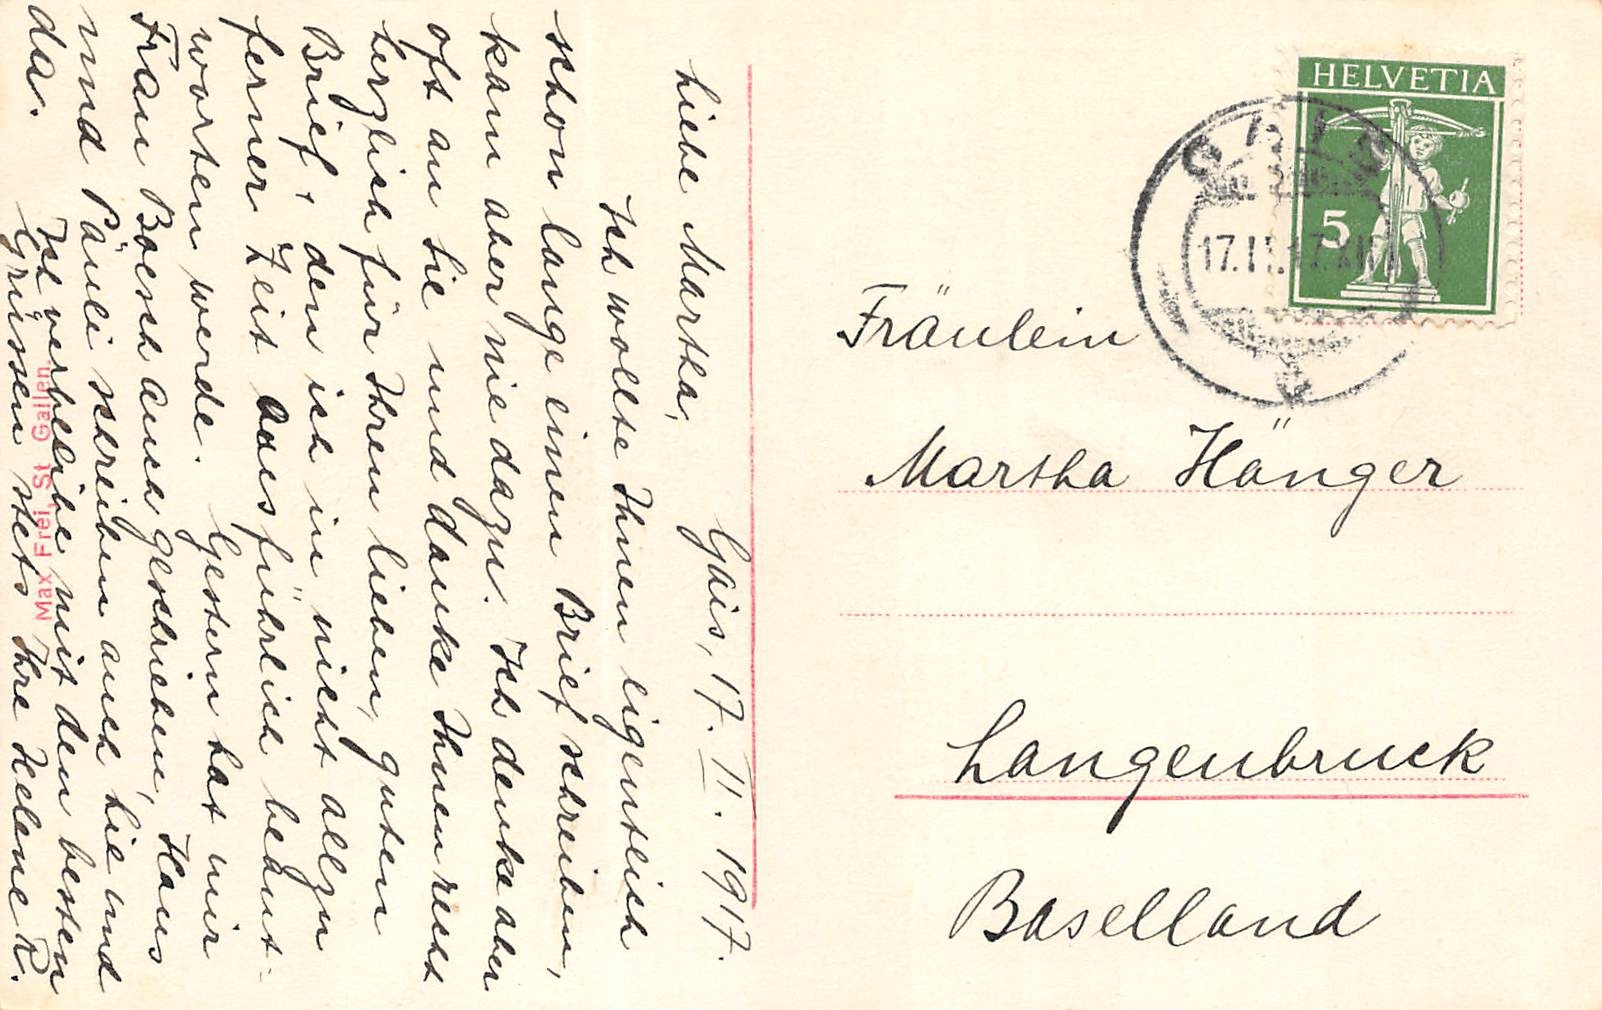 Gais, 17. II. 1917.
Liebe Martha,
Ich wollte Ihnen eigentlich
schon lange einen Brief schreiben,
kam aber nie dazu. Ich denke aber
oft an Sie und danke Ihnen recht
herzlich für Ihren lieben, guten
Brief, den ich in nicht allzu
ferner Zeit ausführlich beant-
worten werde. Gestern hat mir
Frau Boesch auch geschrieben, Hans
und Päuli schreiben auch hie und
da.
Ich verbleibe mit den besten
Grüssen stets Ihre Helene R.
Max Frei, St. Gallen.
HELVETIA
5
GAIS
17.II.17.XII
Fräulein
Martha Hänger
Langenbruck
Baselland